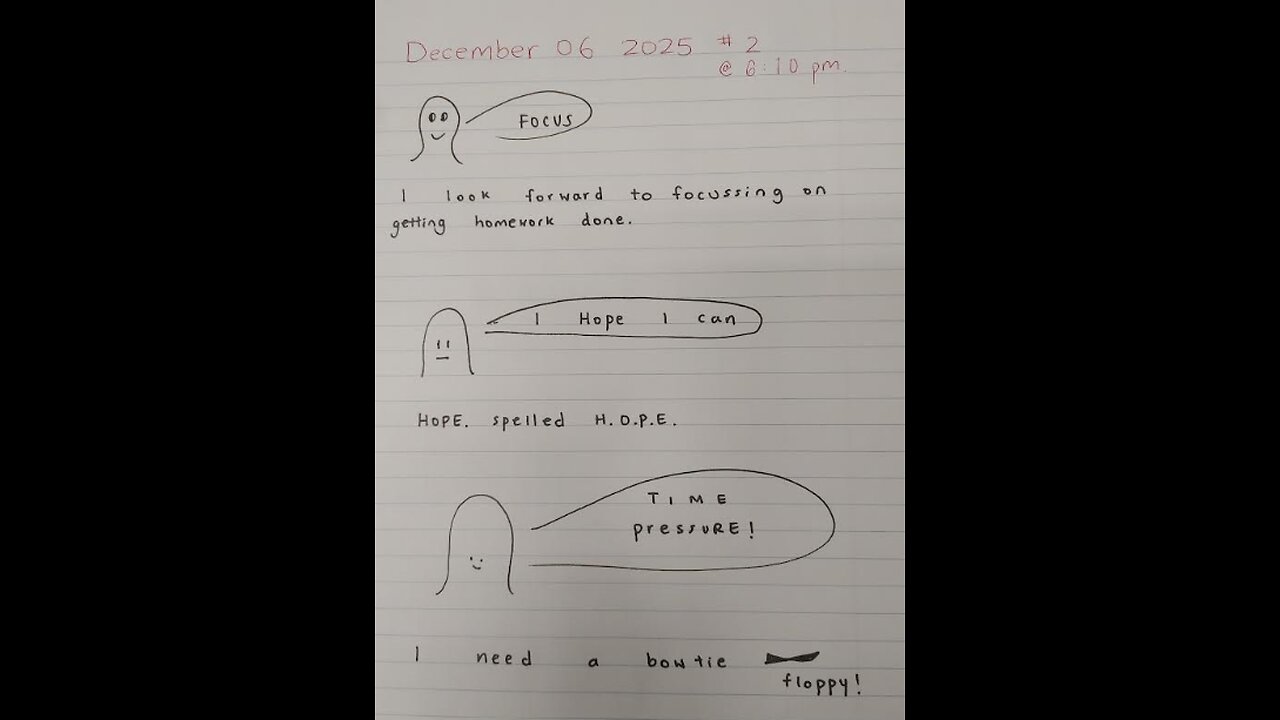 December 06 2025 # 2
@ 6:10 pm.
FOCUS
I look forward to focussing on
getting homework done.
I Hope I can
HOPE. spelled H.O.P.E.
TIME
pressURE!
I need a bowtie
floppy!